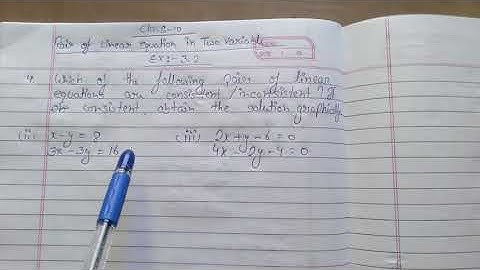 Class-10
Pair of Linear Equation in Two Variable
Ex:- 3.2
4. Which of the following pairs of linear
equations are consistent/inconsistent? If
consistent, obtain the solution graphically
(ii) x-y = 8 (iii) 2x+y-6=0
3x-3y = 16 4x-2y-4=0